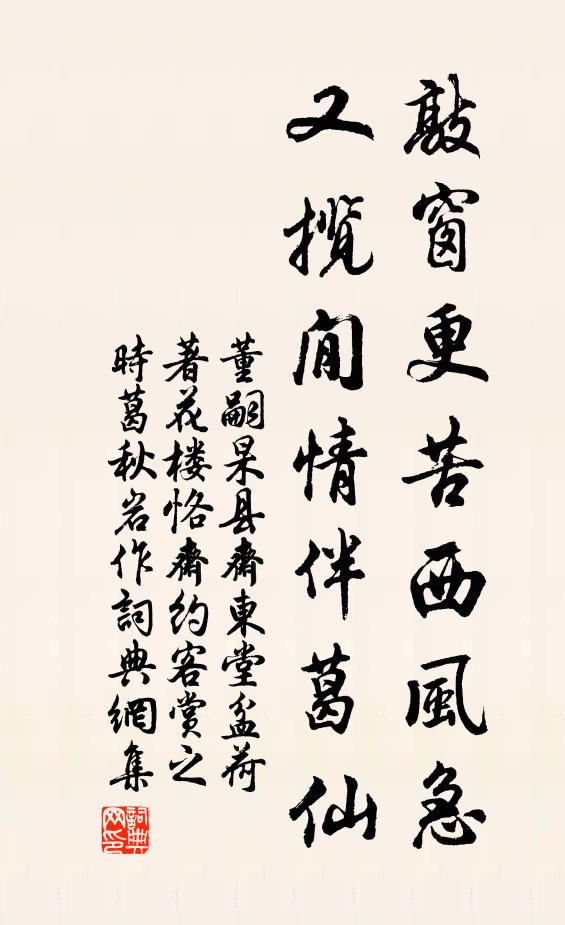 敲窗更苦西風急
又攬閒情伴葛仙
董嗣杲县齋東堂盆荷
著花楼恪齋約客賞之
時葛秋岩作詞典網集
詞典網印